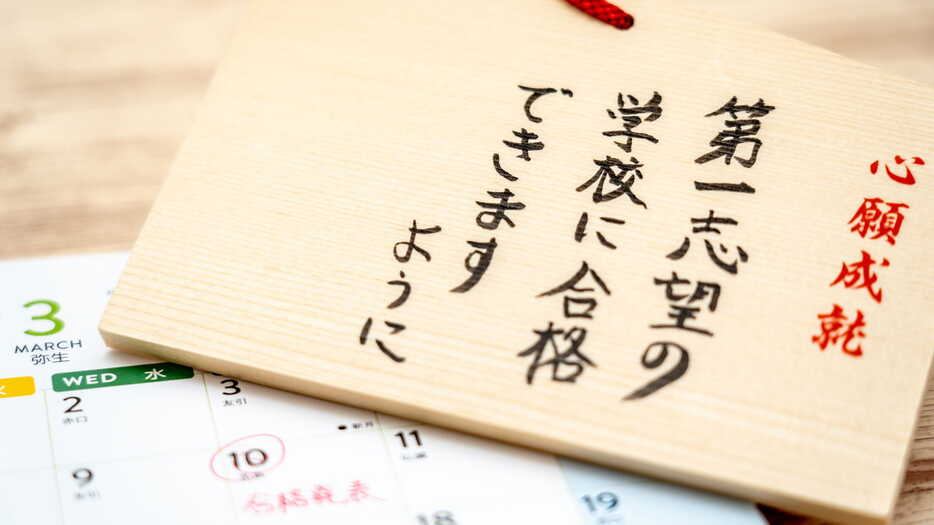 心願成就
第一志望の
学校に合格
できます
ように
3
MARCH
弥生
WED 水
2
赤口
3
友引
9
友引
10
11
合格発表
18
19